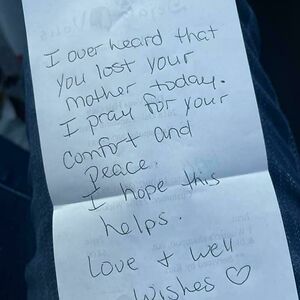 I over heard that
you lost your
mother today.
I pray for your
comfort and
Peace.
I hope this
helps.
Love + Well
wishes ♡